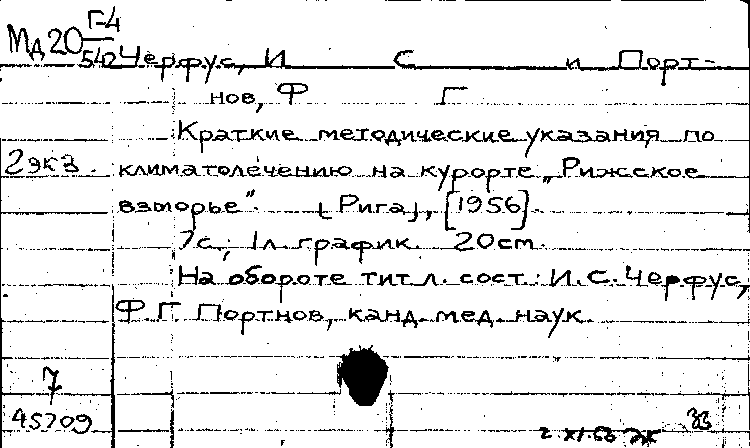 Мд20 Г-4/542
Черфус, И С и Порт-
нов, Ф Г
Краткие методические указания по
2 экз. климатолечению на курорте „Рижское
взморье". [Рига], [1956].
7с.; 1л. график. 20cm.
На обороте тит. л. сост.: И.С. Черфус,
Ф.Г. Портнов, канд. мед. наук.
7
45709